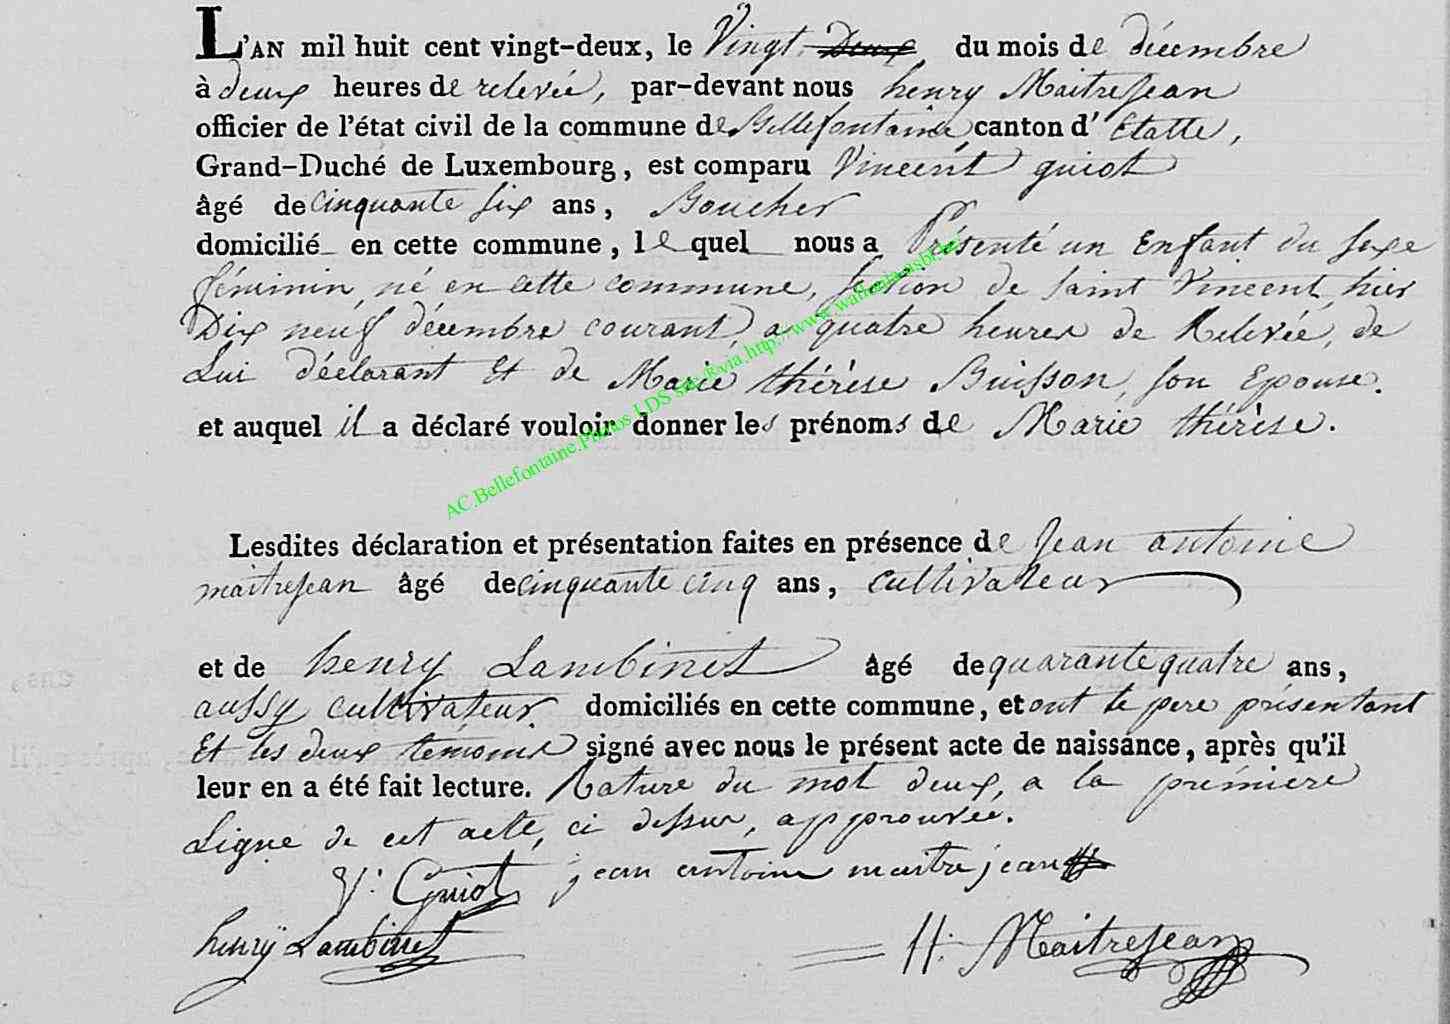 L'AN mil huit cent vingt-deux, le Vingt Deux du mois de décembre
à deux heures de relevée, par-devant nous henry Maitrejean
officier de l'état civil de la commune de Bellefontaine, canton d' Etalle,
Grand-Duché de Luxembourg, est comparu Vincent guiot
âgé de cinquante six ans, Boucher
domicilié en cette commune, le quel nous a Présenté un Enfant du sexe
féminin, né en cette commune, section de saint Vincent, hier
Dix neuf décembre courant, a quatre heures de Relevée, de
Lui déclarant Et de Marie thérèse Buisson, son Epouse.
et auquel il a déclaré vouloir donner les prénoms de Marie thérèse.
AC.Bellefontaine.Photos LDS
Lesdites déclaration et présentation faites en présence de Jean antoine
maitrejean âgé de cinquante cinq ans, cultivateur
et de henry Lambinet âgé de quarante quatre ans,
aussy cultivateur domiciliés en cette commune, et ont le pere présentant
Et les deux témoins signé avec nous le présent acte de naissance, après qu'il
leur en a été fait lecture. Rature du mot deux, a la première
Ligne de cet acte, ci dessus, approuvée.
V. Guiot jean antoine maitrejean
henrÿ Lambinet
H. Maitrejean